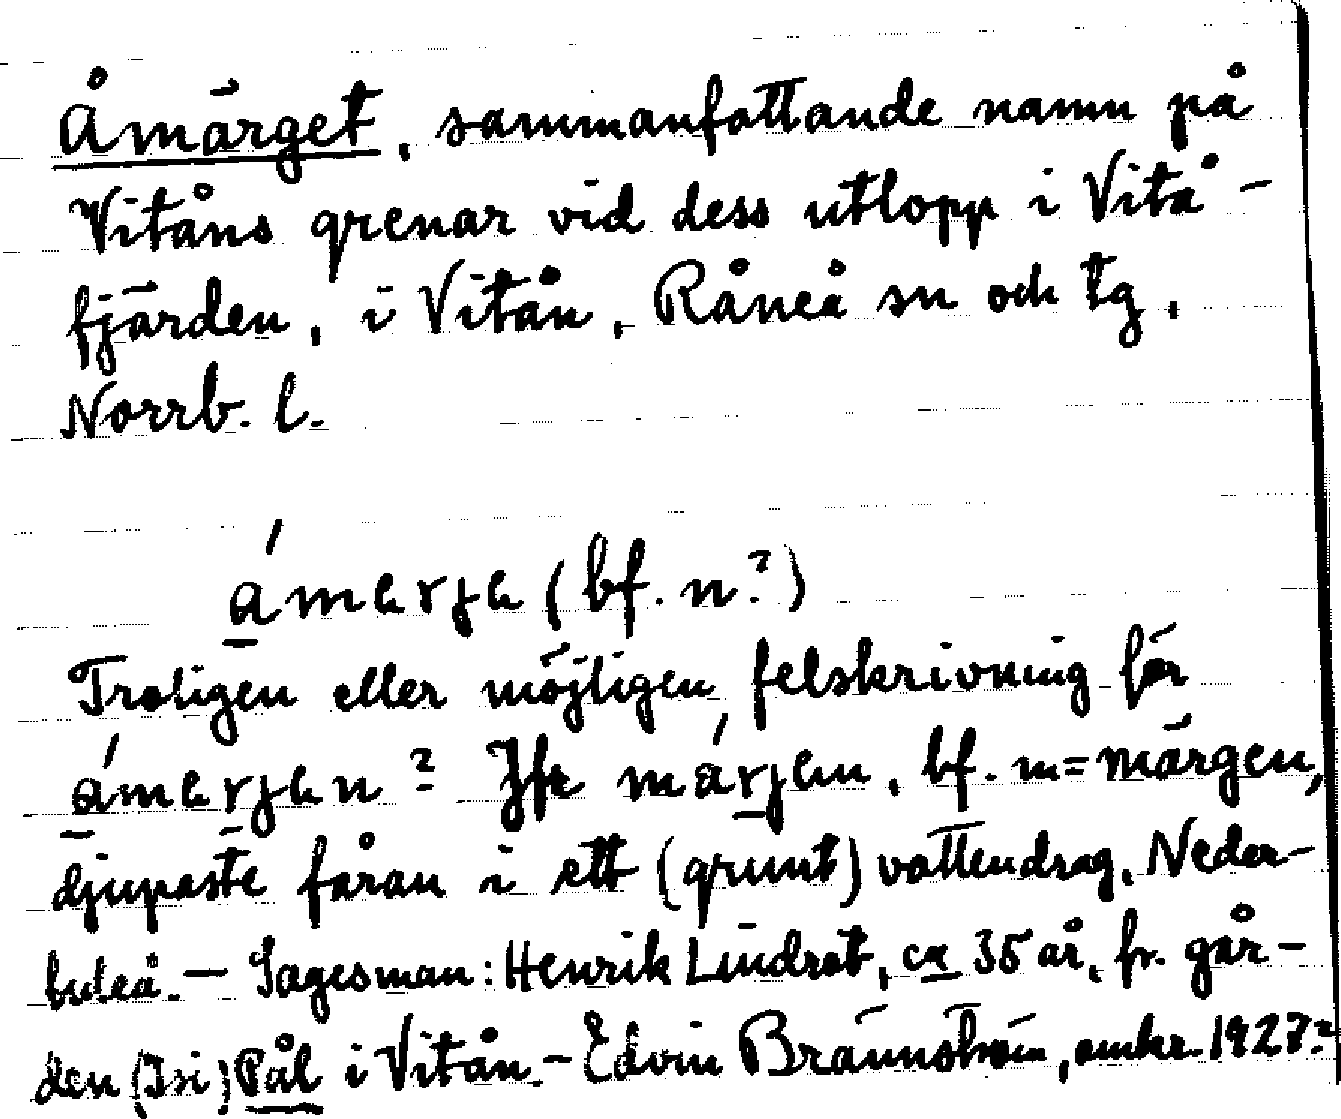 Åmärget, sammanfattande namn på
Vitåns grenar vid dess utlopp i Vitå-
fjärden, i Vitån, Råneå sn och tg,
Norrb. l.
(bf. n?)
Troligen eller möjligen felskrivning för
? Jfr bf. m = märgen,
djupaste fåran i ett (grunt) vattendrag, Neder-
luleå. – Sagesman: Henrik Lindrot, ca 35 år, fr. går-
den (Isi) Pål i Vitån. – Edvin Brännström, omkr. 1927?